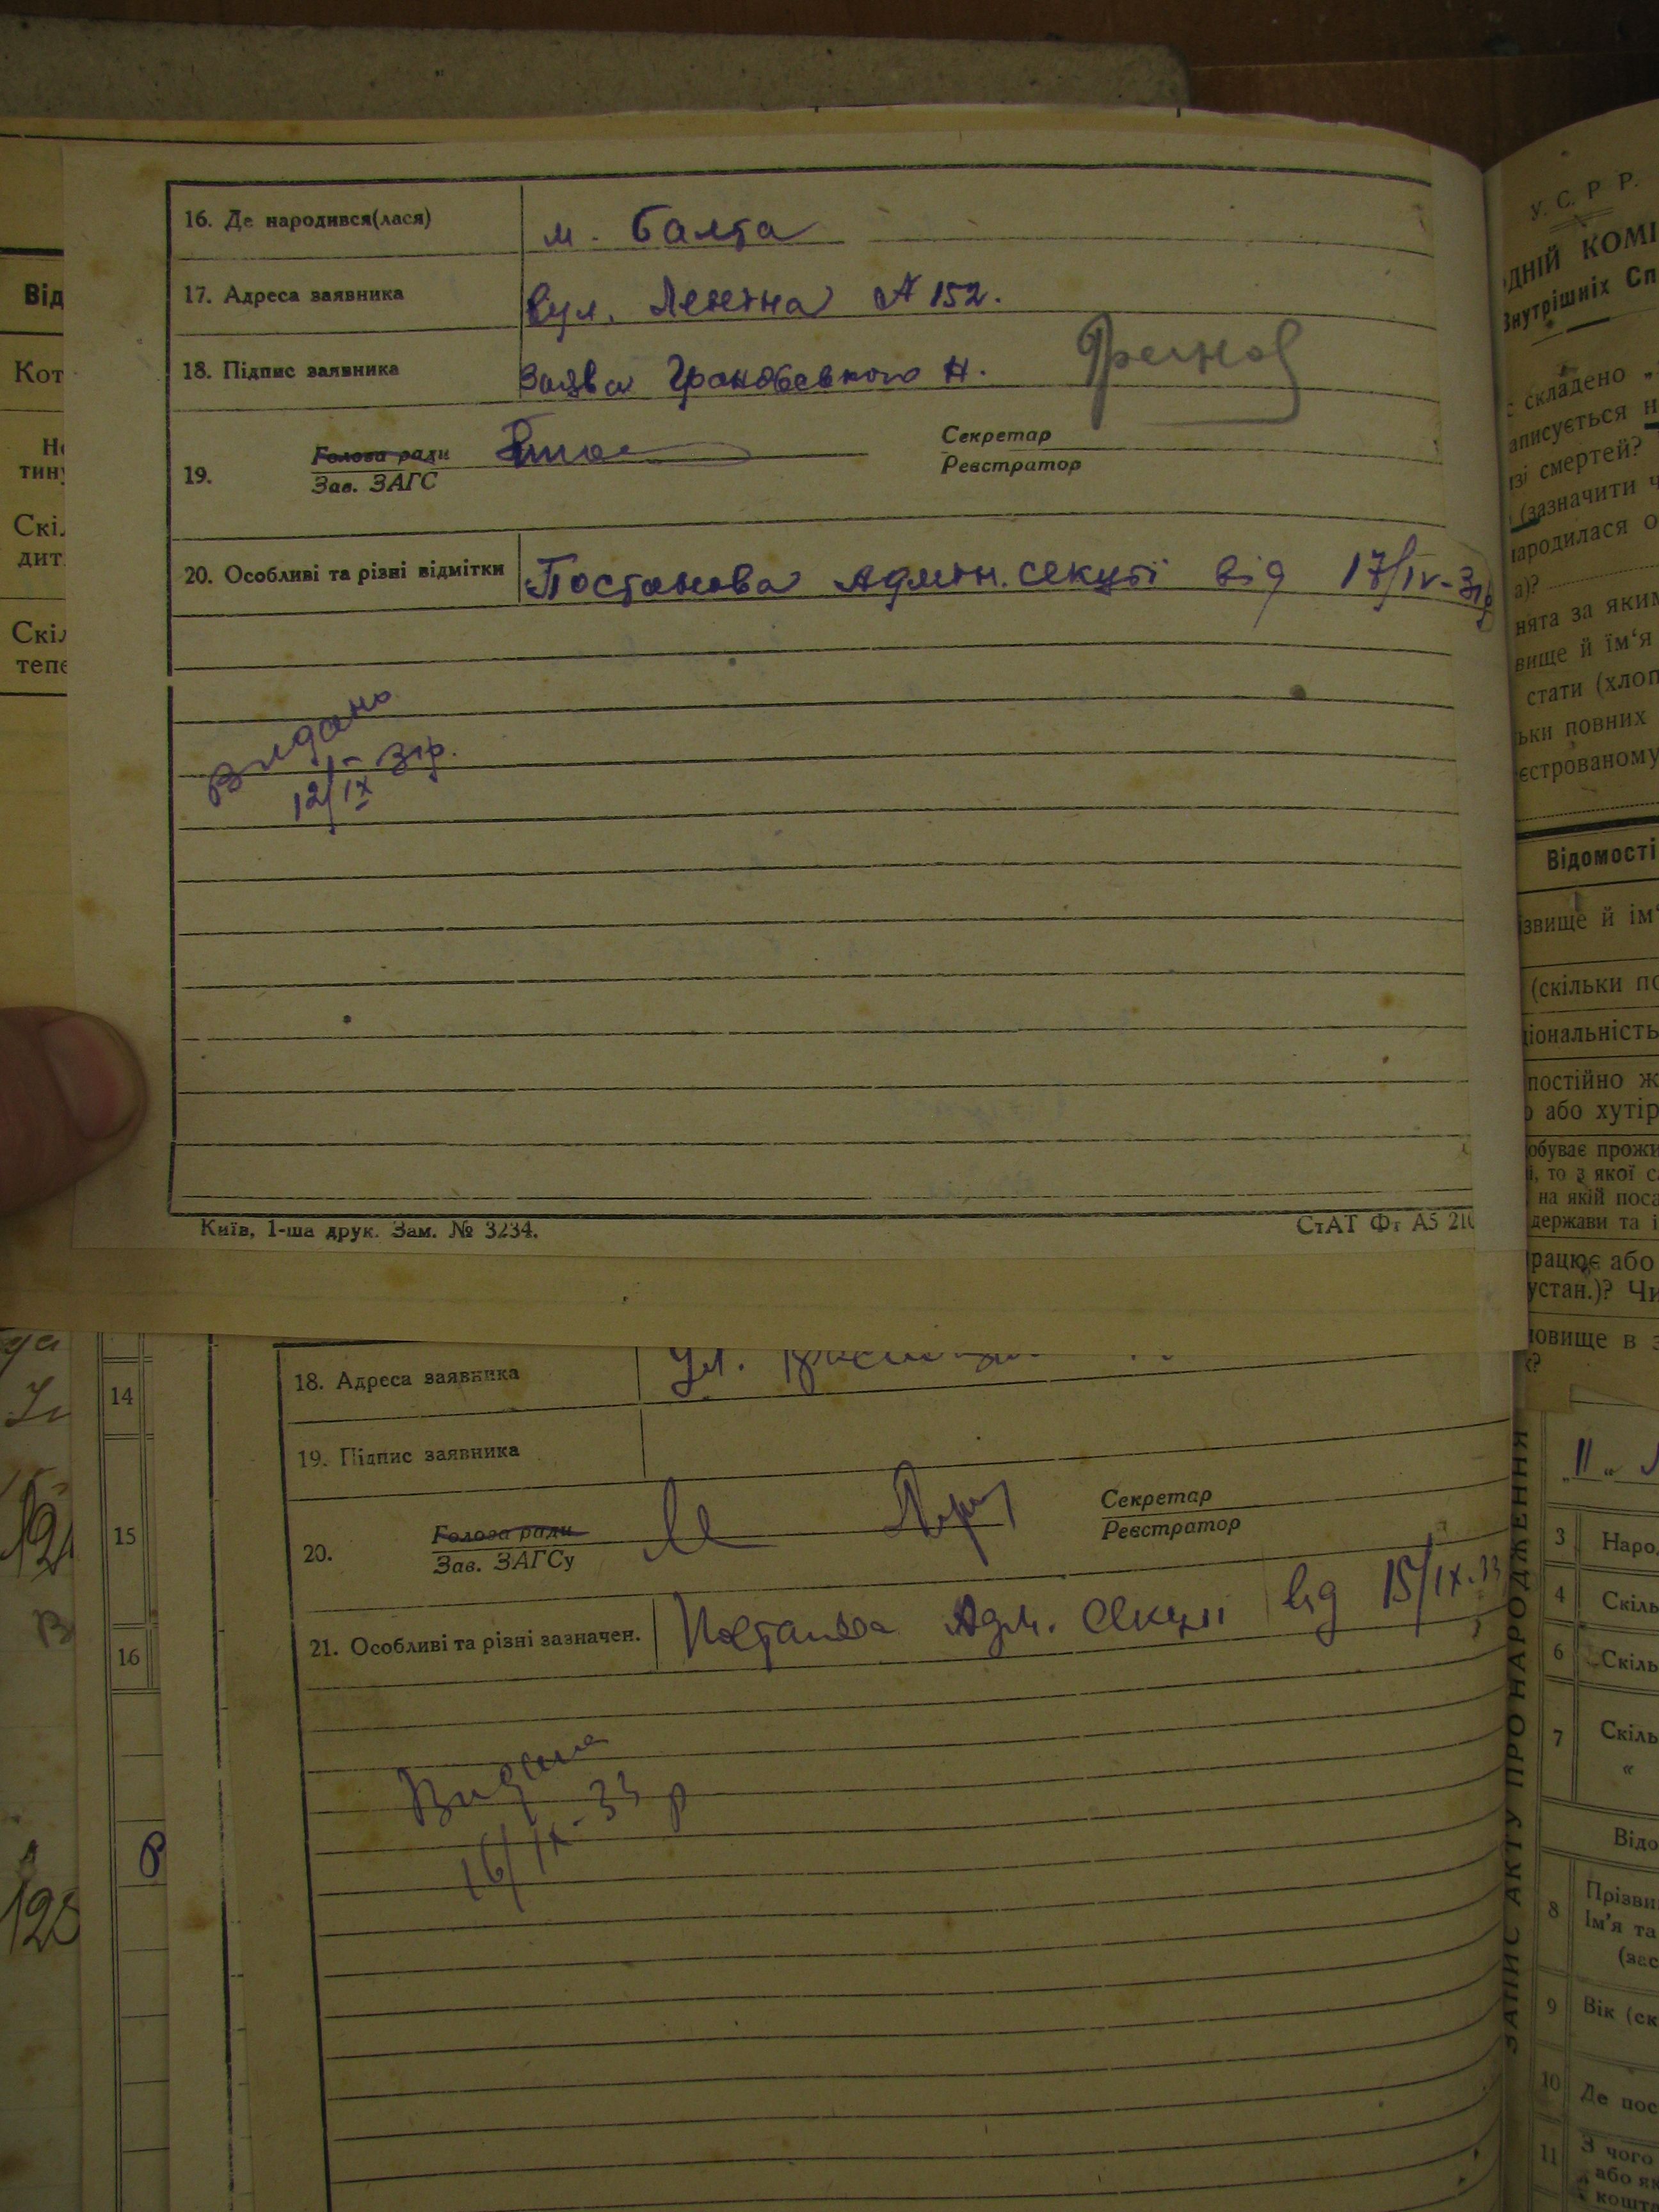 16. Де народився(лася) м. Балта
17. Адреса заявника вул. Леніна № 152.
18. Підпис заявника Заява Грановського Н.
19. Голова ради Секретар
Зав. ЗАГС Реєстратор
20. Особливі та різні відмітки Постанова Адмін. секції від 17/IV-31р
Видано
12/IX - 31р.
Київ, 1-ша друк. Зам. № 3234. СтАТ Фт А5 210
18. Адреса заявника ул.
19. Підпис заявника
20. Голова ради Секретар
Зав. ЗАГСу Реєстратор
21. Особливі та різні зазначен. Постанова Адм. секції від 15/IX-33
Видана
16/IX-33 р
Від
Кот
тин
Скіл
дит
Скіл
тепе
14
15
16
У. С. Р. Р.
ДНІЙ КОМІ
Внутрішніх Сп
складено „
аписується н
зі смертей?
(зазначити ч
народилася о
а)?
нята за яким
вище й їм‘я
стати (хлоп
ьки повних
єстрованому
Відомості
ізвище й ім‘
(скільки по
іональність
постійно ж
о або хутір
обуває прожи
і, то з якої с
на якій поса
держави та і
рацює або
устан.)? Чи
овище в з
ЗАПИС АКТУ ПРО НАРОДЖЕННЯ
„11„
3 Наро
4 Скіль
6 Скіль
7 Скіль
«
Відо
8 Прізви
Ім'я та
(зас
9 Вік (ск
10 Де пос
11 З чого
або як
кошта